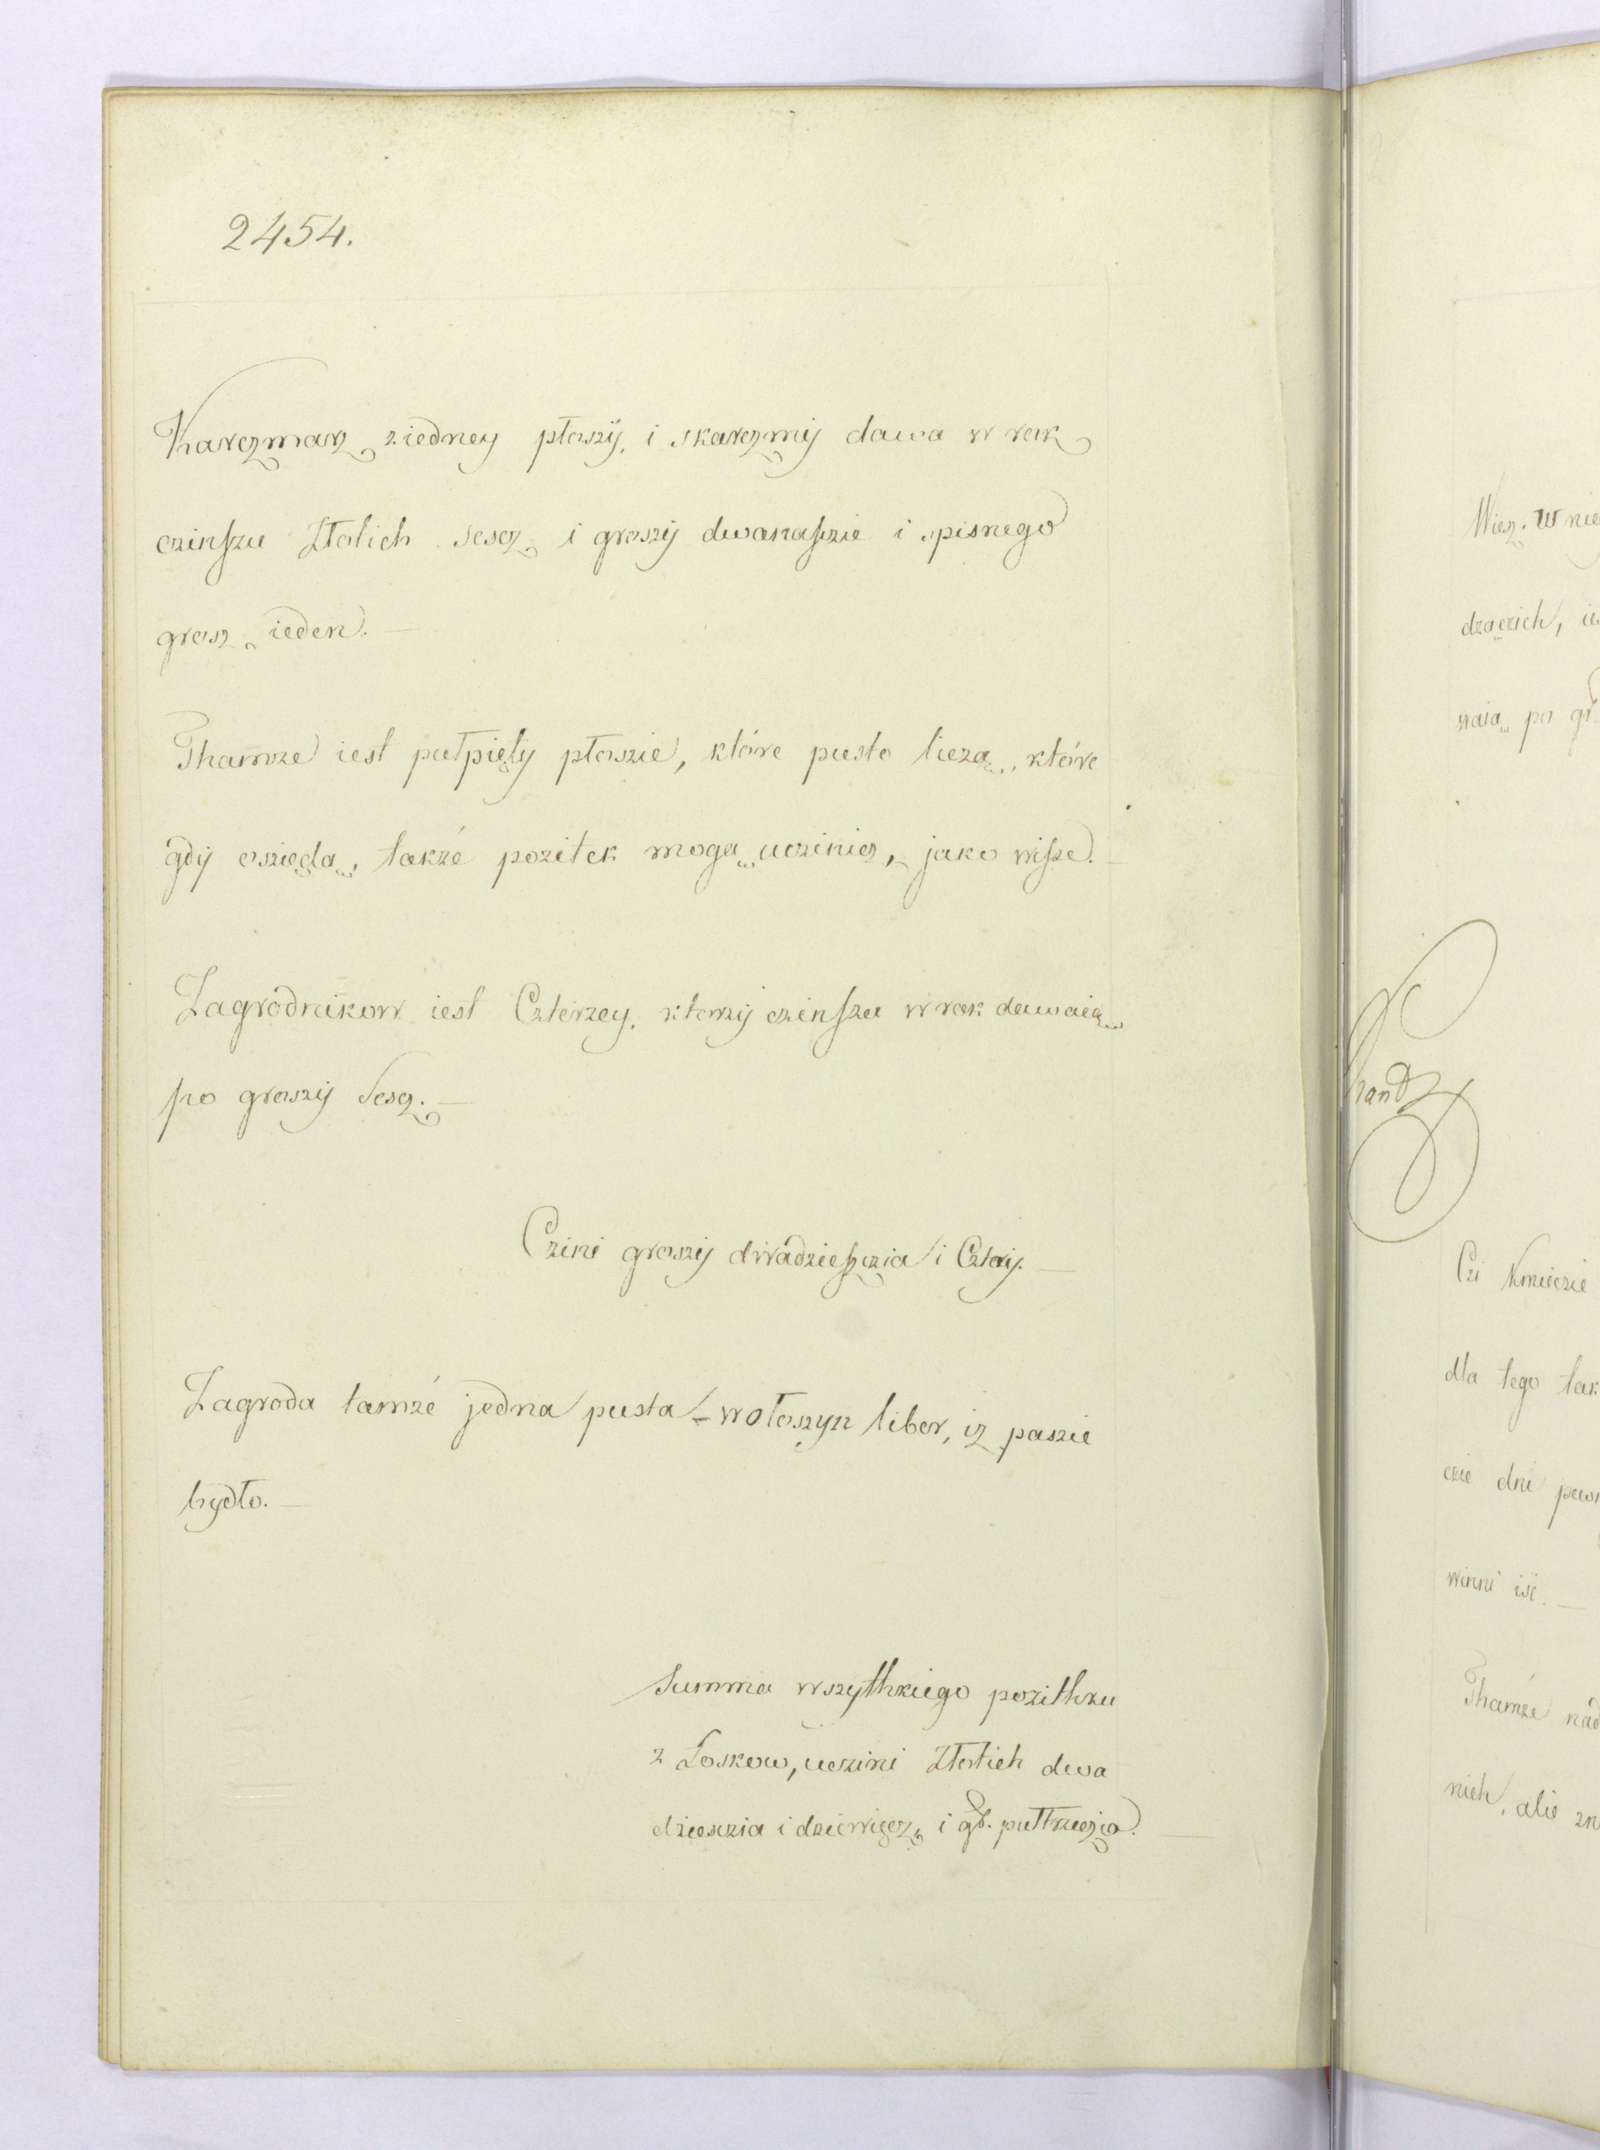 2454.
Karczmarz ziedney płoszÿ, i skarczmÿ dawa w rok
czinſzu Złotich sescz i groszÿ dwanaſczie i pisnego
grosz ieden. —
Thamze iest pułpięty płoszie, które pusto lieza, które
gdÿ osziędą, także pozitek mogą uczinicz, jako wiſze. —
Zagrodnikow iest Czterzey, ktorzÿ czinſzu w rok dawaią
po groszÿ Sescz. —
Czini groszÿ dwadzieſzczia i Cztery. —
Zagroda tamże jedna pusta – wołoszyn liber, iz paszie
bydło. —
Summa wszythkiego pozithku
z Łoskow, uczini Złotich dwa
dziesczia i dziewięcz i gr. pułtrzeczia. —
Wiecz. w nie
dzączich, ie
waią po gr
Czi Kmieczie
dla tego tak
czie dni
winni iść. —
Thamże nad
nich, alie zn